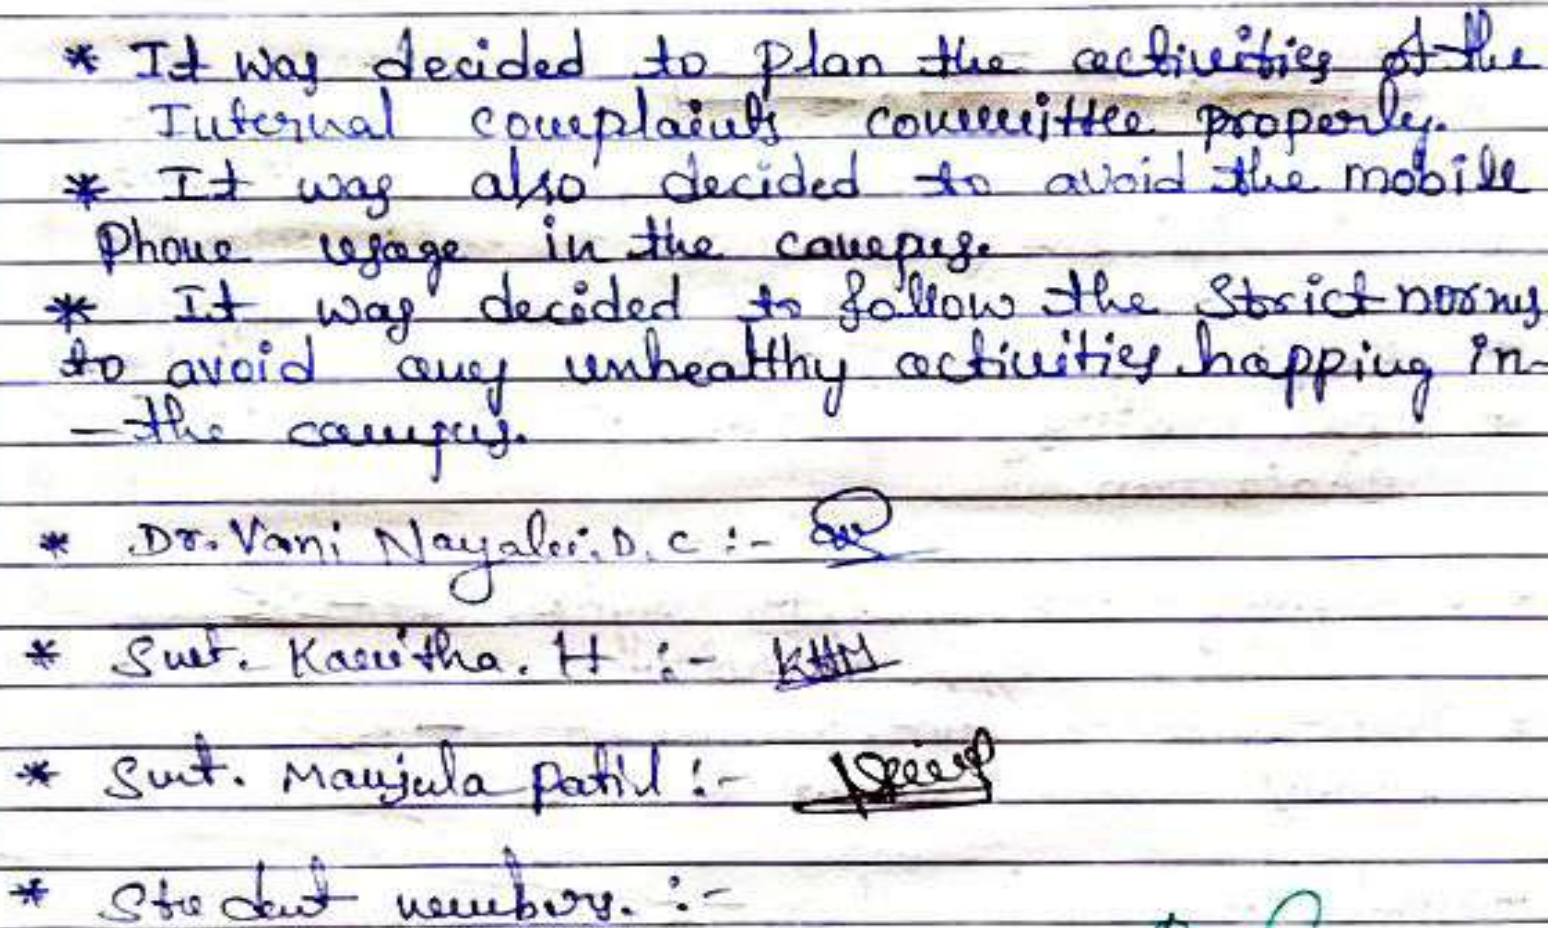 * It was decided to plan the activities of the
Internal complaints committee properly.
* It was also decided to avoid the mobile
Phone usage in the campus.
* It was decided to follow the strict norms
to avoid any unhealthy activities happing in-
- the campus.
* Dr. Vani Nayaki. D. C :-
* Smt. Kavitha. H :- KHM
* Smt. Manjula Patil :-
* Student members. :-